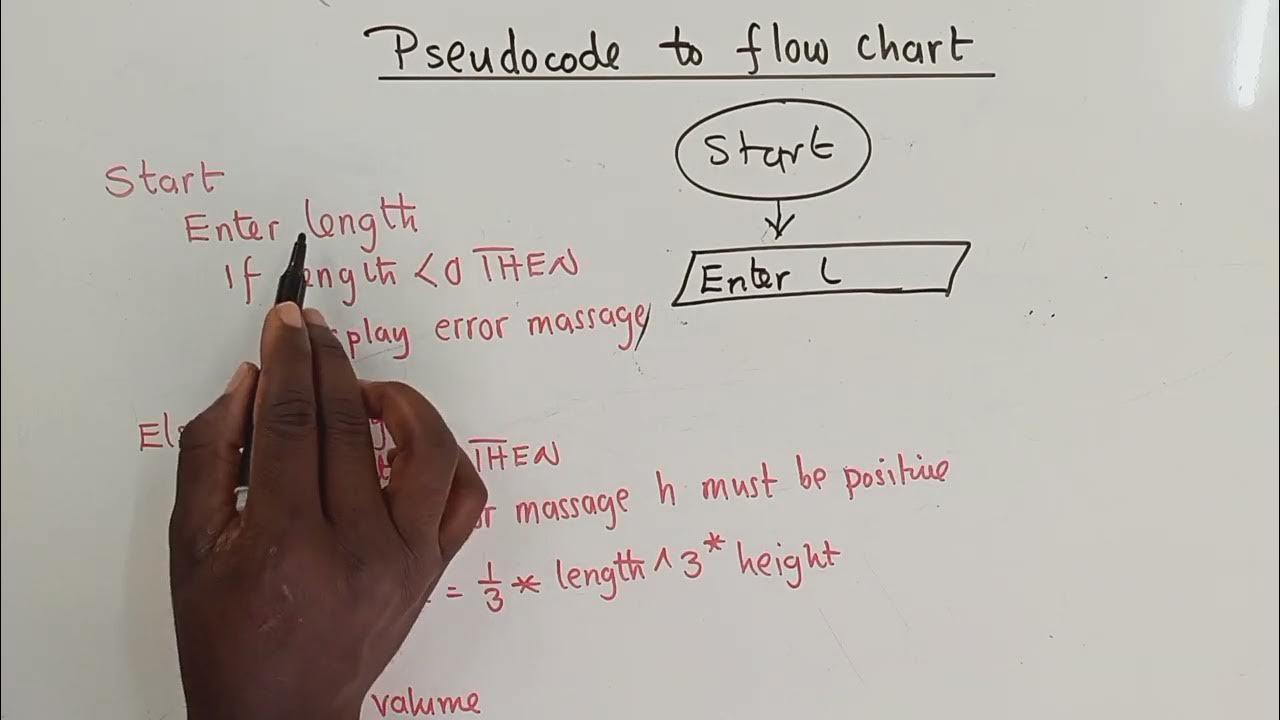 Pseudocode to flow chart
Start
Enter length
If length <0 THEN
play error massage
THEN
massage h must be positive
= 1/3 * length ^ 3 * height
valume
Start
Enter L